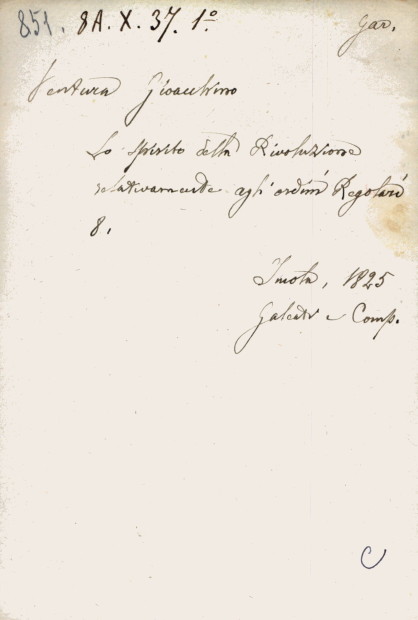 851. 8A. X. 37. 1.º
Gar.
Ventura Gioacchino
Lo Spirito della Rivoluzione
relativamente agli ordini Regolari
8.
Imola, 1825
Galeati e Comp.
C